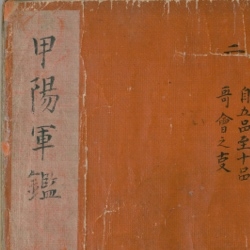 甲陽軍鑑
二
自五品至十品
哥會之㕝